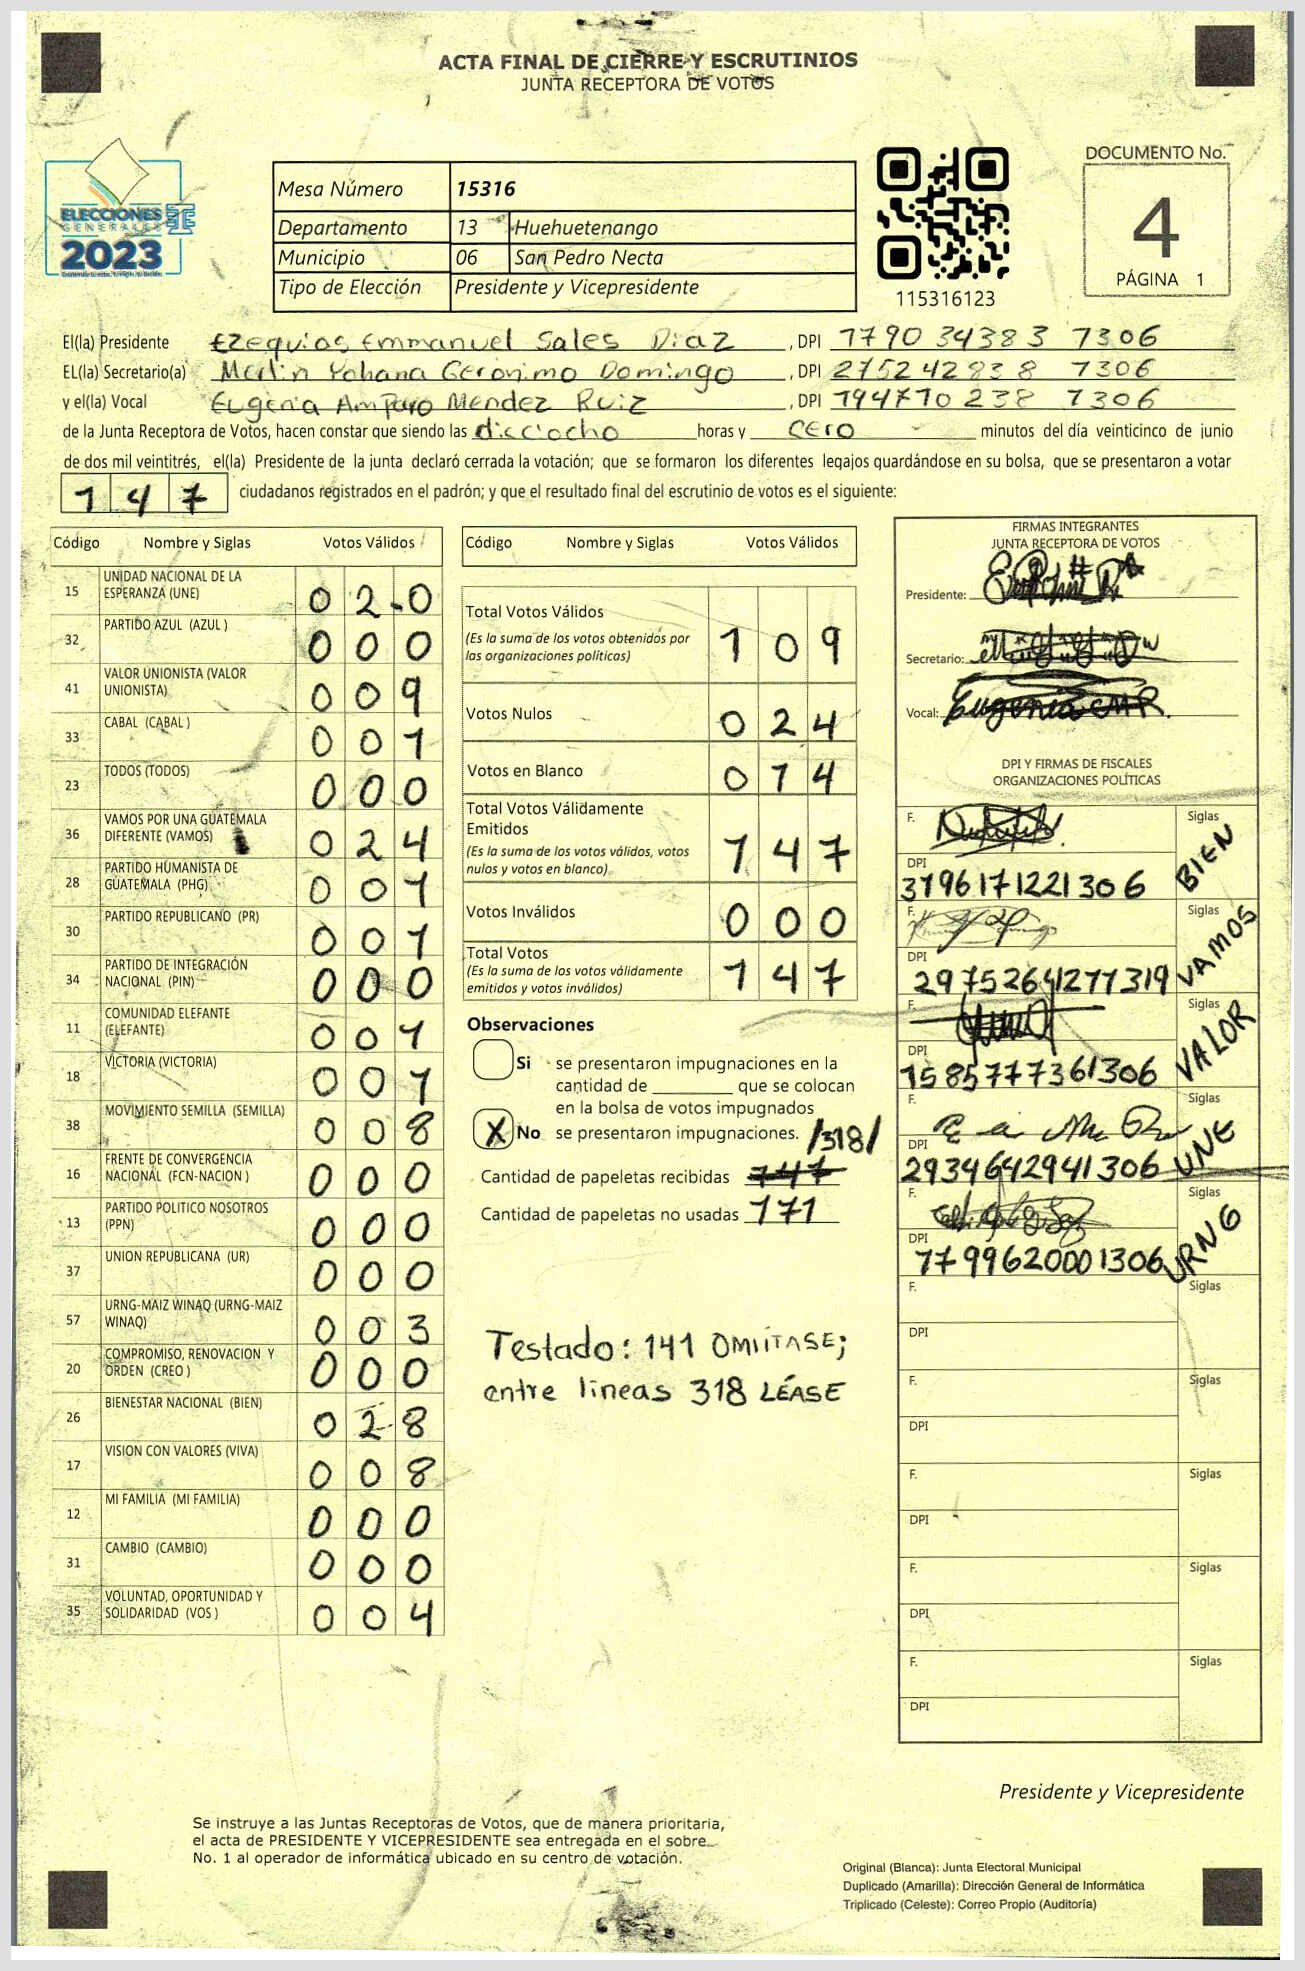 ACTA FINAL DE CIERRE Y ESCRUTINIOS
JUNTA RECEPTORA DE VOTOS
ELECCIONES
GENERALES
2023
Mesa Número 15316
Departamento 13 Huehuetenango
Municipio 06 San Pedro Necta
Tipo de Elección Presidente y Vicepresidente
115316123
DOCUMENTO No.
4
PÁGINA 1
El(la) Presidente Ezequias Emmanuel Sales Diaz, DPI 1790 34383 1306
EL(la) Secretario(a) Merlin Yohana Geronimo Domingo, DPI 275242838 1306
y el(la) Vocal Eugenia Amparo Mendez Ruiz, DPI 194710238 1306
de la Junta Receptora de Votos, hacen constar que siendo las dieciocho horas y cero minutos del día veinticinco de junio
de dos mil veintitrés, el(la) Presidente de la junta declaró cerrada la votación; que se formaron los diferentes legajos guardándose en su bolsa, que se presentaron a votar
147 ciudadanos registrados en el padrón; y que el resultado final del escrutinio de votos es el siguiente:
Código Nombre y Siglas Votos Válidos
15 UNIDAD NACIONAL DE LA ESPERANZA (UNE) 020
32 PARTIDO AZUL (AZUL ) 000
41 VALOR UNIONISTA (VALOR UNIONISTA) 009
33 CABAL (CABAL ) 001
23 TODOS (TODOS) 000
36 VAMOS POR UNA GUATEMALA DIFERENTE (VAMOS) 024
28 PARTIDO HUMANISTA DE GUATEMALA (PHG) 001
30 PARTIDO REPUBLICANO (PR) 001
34 PARTIDO DE INTEGRACIÓN NACIONAL (PIN) 000
11 COMUNIDAD ELEFANTE (ELEFANTE) 001
18 VICTORIA (VICTORIA) 001
38 MOVIMIENTO SEMILLA (SEMILLA) 008
16 FRENTE DE CONVERGENCIA NACIONAL (FCN-NACION ) 000
13 PARTIDO POLITICO NOSOTROS (PPN) 000
37 UNION REPUBLICANA (UR) 000
57 URNG-MAIZ WINAQ (URNG-MAIZ WINAQ) 003
20 COMPROMISO, RENOVACION Y ORDEN (CREO ) 000
26 BIENESTAR NACIONAL (BIEN) 028
17 VISION CON VALORES (VIVA) 008
12 MI FAMILIA (MI FAMILIA) 000
31 CAMBIO (CAMBIO) 000
35 VOLUNTAD, OPORTUNIDAD Y SOLIDARIDAD (VOS ) 004
Código Nombre y Siglas Votos Válidos
Total Votos Válidos 109
(Es la suma de los votos obtenidos por
las organizaciones políticas)
Votos Nulos 024
Votos en Blanco 014
Total Votos Válidamente
Emitidos 147
(Es la suma de los votos válidos, votos
nulos y votos en blanco)
Votos Inválidos 000
Total Votos 147
(Es la suma de los votos válidamente
emitidos y votos inválidos)
Observaciones
Si se presentaron impugnaciones en la
cantidad de ________ que se colocan
en la bolsa de votos impugnados
X No se presentaron impugnaciones. /318/
Cantidad de papeletas recibidas 147
Cantidad de papeletas no usadas 171
Testado: 141 OMIÍTASE;
entre lineas 318 LÉASE
FIRMAS INTEGRANTES
JUNTA RECEPTORA DE VOTOS
Presidente:
Secretario:
Vocal: Eugenia AMR.
DPI Y FIRMAS DE FISCALES
ORGANIZACIONES POLÍTICAS
F. Siglas BIEN
DPI 3196171221306
F. Siglas VAMOS
DPI 29752641277319
F. Siglas VALOR
DPI 1585777361306
F. Siglas UNE
DPI 2934642941306
F. Siglas URNG
DPI 1799620001306
F. Siglas
DPI
F. Siglas
DPI
F. Siglas
DPI
F. Siglas
DPI
F. Siglas
DPI
Presidente y Vicepresidente
Se instruye a las Juntas Receptoras de Votos, que de manera prioritaria,
el acta de PRESIDENTE Y VICEPRESIDENTE sea entregada en el sobre
No. 1 al operador de informática ubicado en su centro de votación.
Original (Blanca): Junta Electoral Municipal
Duplicado (Amarilla): Dirección General de Informática
Triplicado (Celeste): Correo Propio (Auditoría)